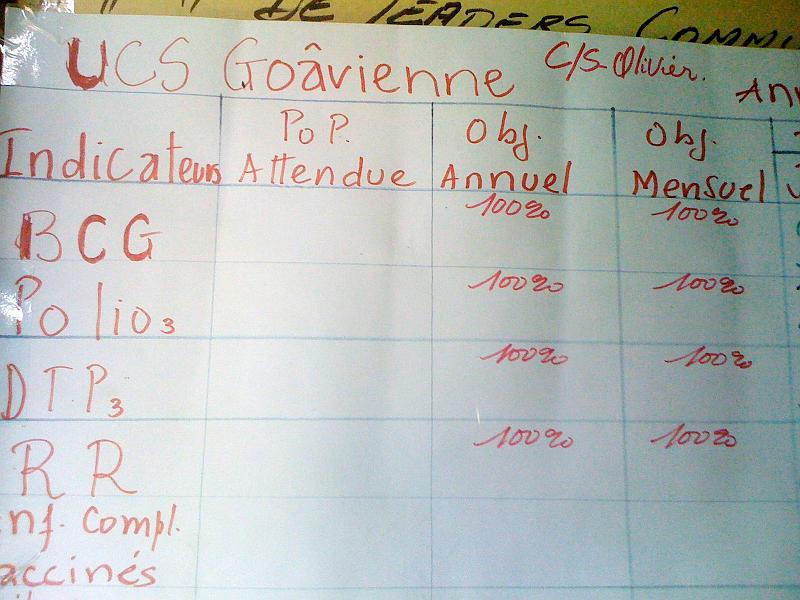 DE LEADERS COMMU
UCS Goâvienne C/S-Olivier. Ann
Indicateurs Pop. Attendue Obj. Annuel Obj. Mensuel
BCG 100% 100%
Polio3 100% 100%
DTP3 100% 100%
RR 100% 100%
nf. Compl.
accinés